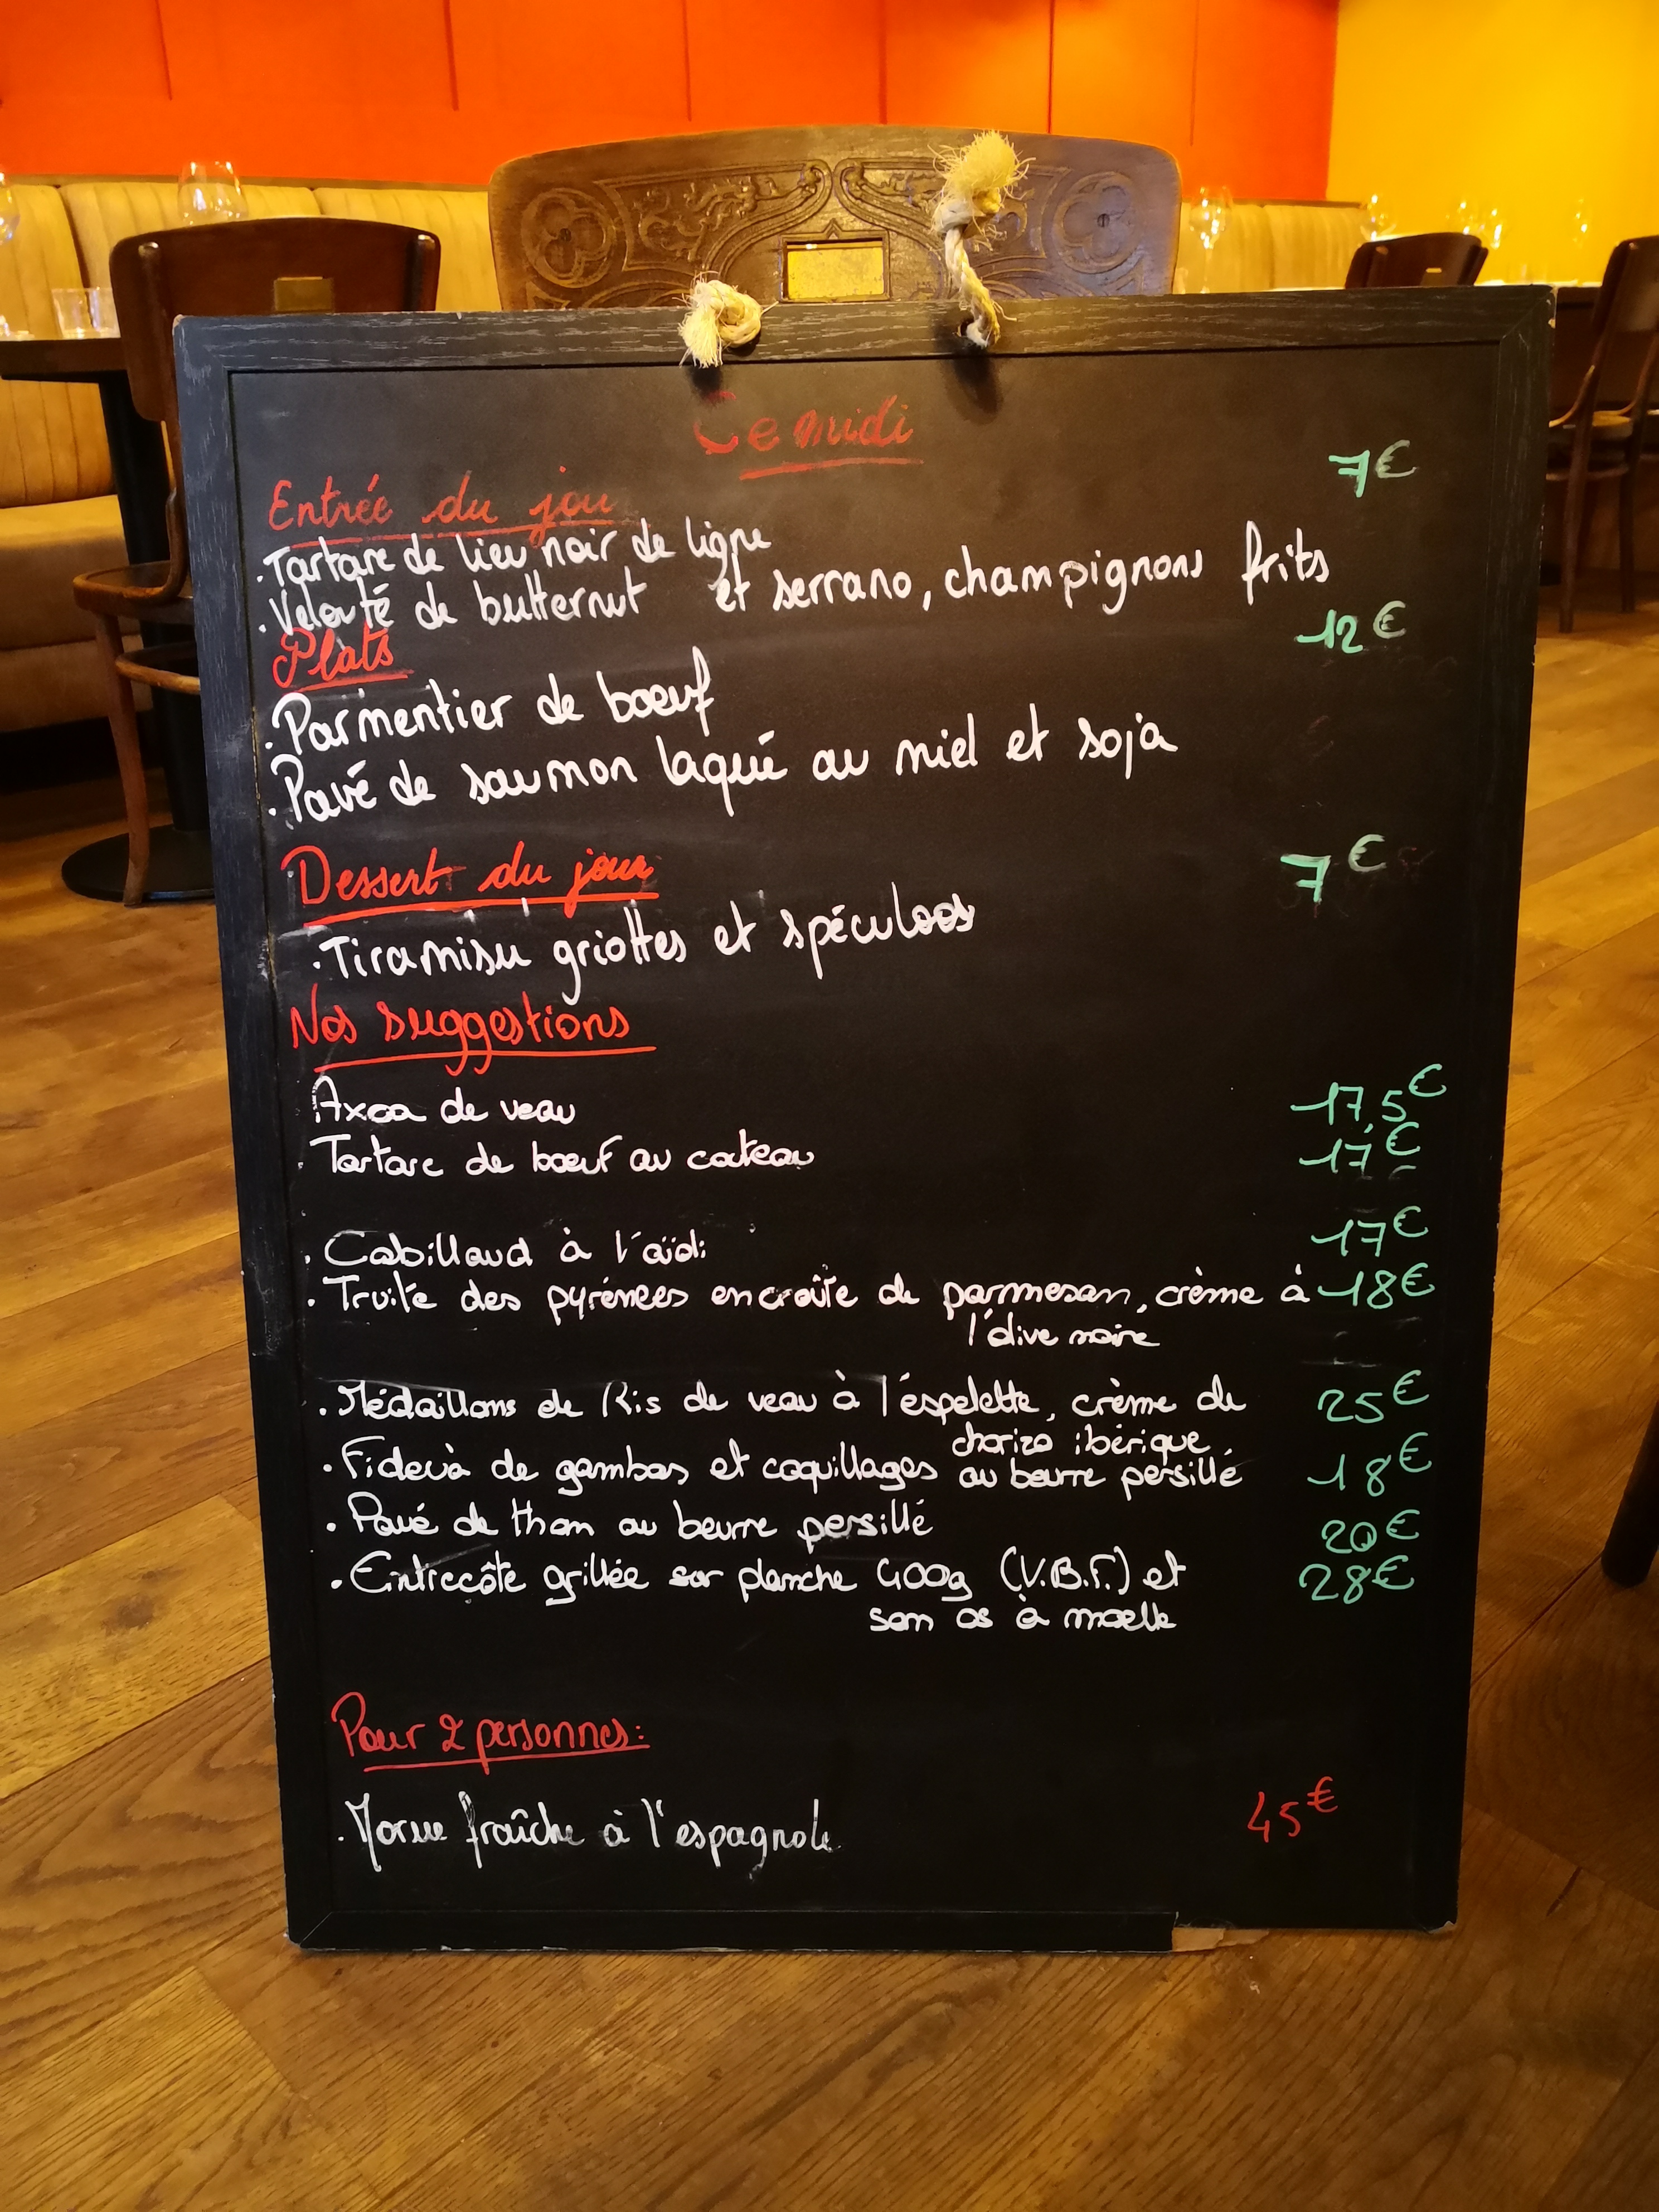 Ce midi
7€
Entrée du jou
.Tartare de lieu noir de ligne
.Velouté de butternut et serrano, champignons frits
Plats 12€
.Parmentier de boeuf
.Pavé de saumon laqué au miel et soja
Dessert du jour 7€
.Tiramisu griottes et spéculoos
Nos suggestions
.Axoa de veau 17,5€
.Tartare de boeuf au couteau 17€
.Cabillaud à l'aïoli 17€
.Truite des pyrénées en croûte de parmesan, crème à 18€
l'olive noire
.Médaillons de Ris de veau à l'éspelette, crème de 25€
chorizo ibérique
.Fideuà de gambas et coquillages au beurre persillé 18€
.Pavé de thon au beurre persillé 20€
.Entrecôte grillée sur planche 400g (V.B.F.) et 28€
son os à moelle
Pour 2 personnes:
.Morue fraîche à l'espagnole 45€